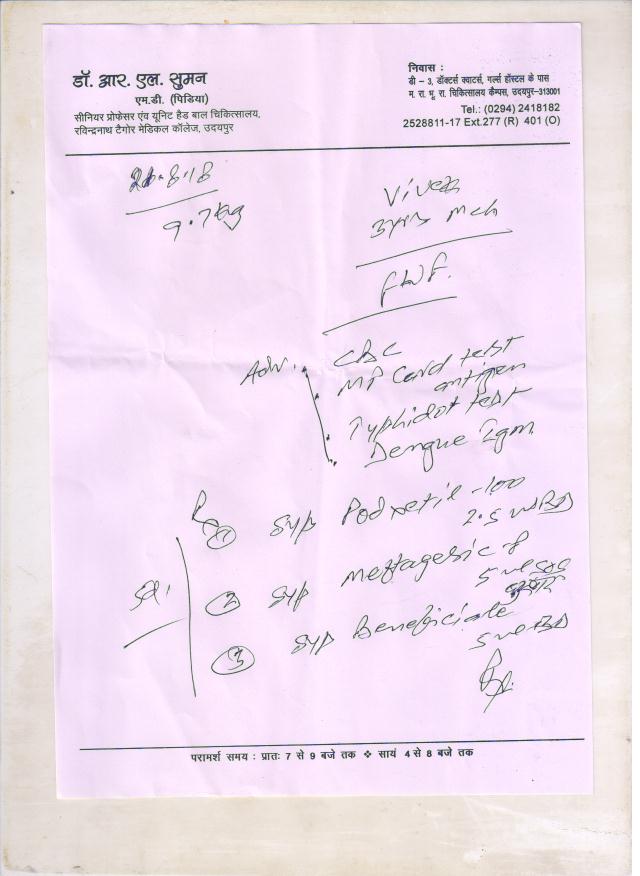 डॉ. आर. एल. सुमन
एम.डी. (पिडिया)
सीनियर प्रोफेसर एंव यूनिट हैड बाल चिकित्सालय,
रविन्द्रनाथ टैगोर मेडिकल कॉलेज, उदयपुर
निवास :
डी – 3, डॉक्टर्स क्वाटर्स, गर्ल्स हॉस्टल के पास
म. रा. भू. रा. चिकित्सालय कैम्पस, उदयपुर-313001
Tel.: (0294) 2418182
2528811-17 Ext.277 (R) 401 (O)
8.18
9.7kg
3yrs mch
Adv.
CBC
MP Card test
antigen
Typhidot test
Dengue Igm
① Syp Podxetil -100
2.5 ml BD
② Syp meftagesic
5 ml
③ Syp Beneficiale
5 ml BD
परामर्श समय : प्रातः 7 से 9 बजे तक ❖ सायं 4 से 8 बजे तक